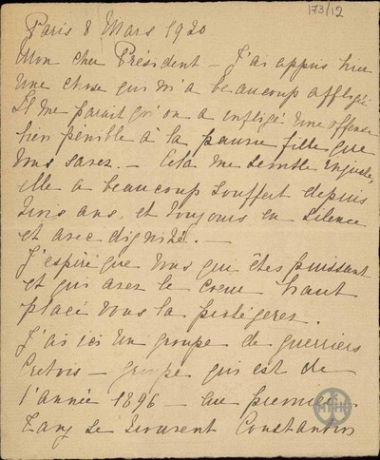 173/12
Paris 8 Mars 1920
Mon cher Président – J'ai appris hier
une chose qui m'a beaucoup affligée
Il me parait qu'on a infligé une offense
bien pénible à la pauvre fille que
vous savez. – Cela me semble injuste,
elle a beaucoup souffert depuis
trois ans, et toujours en silence
et avec dignité. –
J'espère que vous qui êtes puissant
et qui avez le coeur haut
placé vous la protégerez.
J'ai ici un groupe de guerriers
Crétois – groupe qui est de
l'année 1896 – au premier
rang se trouvent Constantin